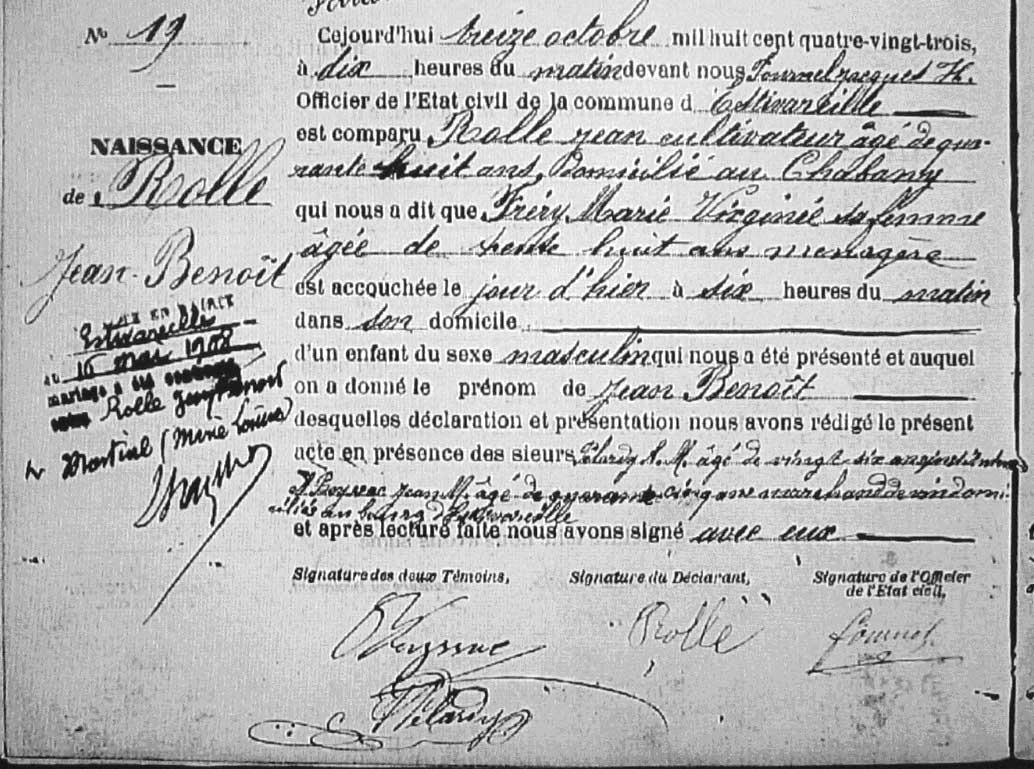 N° 19
NAISSANCE
de Rolle
Jean-Benoît
Estivareille
le 16 mai 1908
mariage a été
Rolle Jean Benoit
Martial (Marie Louise)
Cejourd'hui treize octobre mil huit cent quatre-vingt-trois,
à dix heures du matin devant nous Fournel Jacques H.
Officier de l'Etat civil de la commune d'Estivareille
est comparu Rolle Jean cultivateur âgé de qua-
rante huit ans, Domicilié au Chabany
qui nous a dit que Fréry Marie Virginie sa femme
âgée de trente huit ans menagère
est accouchée le jour d'hier à six heures du matin
dans son domicile
d'un enfant du sexe masculin qui nous a été présenté et auquel
on a donné le prénom de Jean Benoît
desquelles déclaration et présentation nous avons rédigé le présent
acte en présence des sieurs Pilardy A. M. âgé de vingt six ans
& Veyssac Jean M. âgé de quarante cinq ans marchand de vin domi-
ciliés au bourg d'Estivareille
et après lecture faite nous avons signé avec eux
Signature des deux Témoins,
Signature du Déclarant,
Signature de l'Officier
de l'Etat civil,
Veyssac
Rolle
Fournel
Pilardy